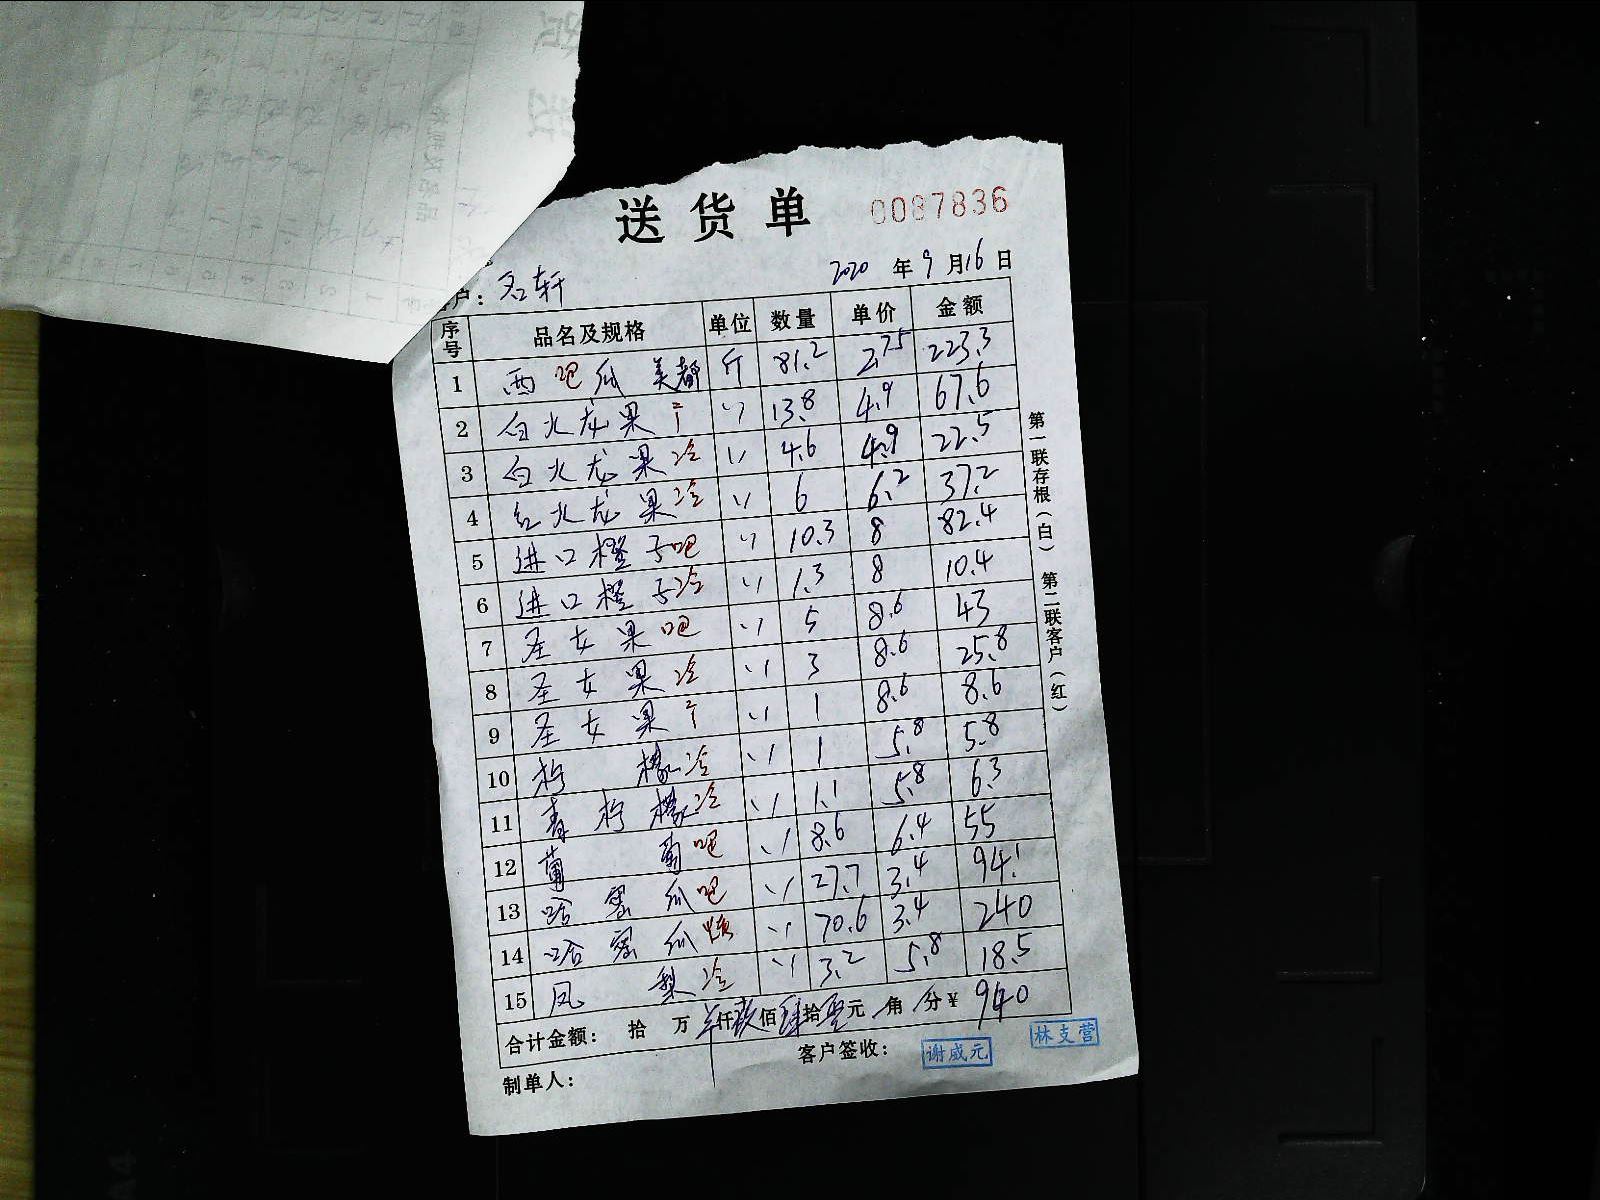 送货单 0087836
户：名轩 2020年9月16日
序号 品名及规格 单位 数量 单价 金额
1 西吧瓜 美都 斤 81.2 2.75 223.3
2 白火龙果 〃 13.8 4.9 67.6
3 白火龙果冷 〃 4.6 4.9 22.5
4 红火龙果冷 〃 6 6.2 37.2
5 进口橙子吧 〃 10.3 8 82.4
6 进口橙子冷 〃 1.3 8 10.4
7 圣女果吧 〃 5 8.6 43
8 圣女果冷 〃 3 8.6 25.8
9 圣女果 〃 1 8.6 8.6
10 柠檬冷 〃 1 5.8 5.8
11 青柠檬冷 〃 1.1 5.8 6.3
12 葡萄吧 〃 8.6 6.4 55
13 哈密瓜吧 〃 27.7 3.4 94.1
14 哈密瓜 〃 70.6 3.4 240
15 凤梨冷 〃 3.2 5.8 18.5
合计金额： 拾 万 仟玖佰肆拾零元 角 分¥ 940
制单人： 客户签收： 谢成元 林支营
第一联存根（白） 第二联客户（红）